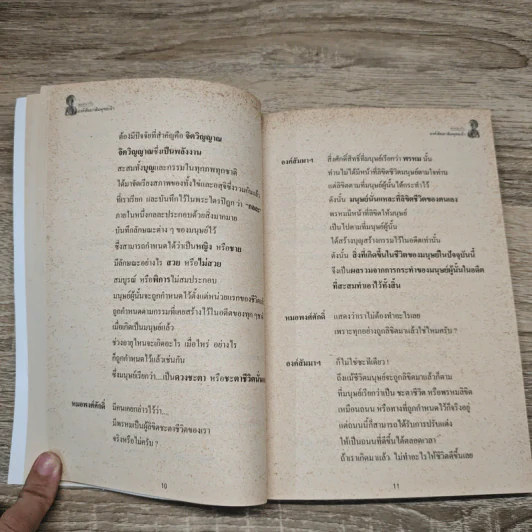 ต้องมีปัจจัยที่สำคัญคือ จิตวิญญาณ
จิตวิญญาณซึ่งเป็นพลังงาน
สะสมทั้งบุญและกรรมในทุกภพทุกชาติ
ได้มาจัดเรียงสภาพของทั้งไข่และอสุจิซึ่งรวมกันแล้ว
ที่เราเรียก และบันทึกไว้ในพระไตรปิฎก ว่า
ภายในหนึ่งกลละประกอบด้วยสิ่งมากมาย
บันทึกลักษณะต่าง ๆ ของมนุษย์ไว้
ซึ่งสามารถกำหนดได้ว่าเป็นหญิง หรือ ชาย
มีลักษณะอย่างไร สวย หรือไม่สวย
สมบูรณ์ หรือพิการไม่สมประกอบ
มนุษย์ผู้นั้นจะถูกกำหนดไว้ตั้งแต่หน่วยแรกของชีวิต
ถูกกำหนดตามกรรมที่เคยสร้างไว้ในอดีตของทุก ๆ
เมื่อเกิดเป็นมนุษย์แล้ว
ช่วงอายุไหนจะเกิดอะไร เมื่อไหร่ อย่างไร
ก็ถูกกำหนดไว้แล้วเช่นกัน
ซึ่งมนุษย์เรียกว่า...เป็นดวงชะตา หรือชะตาชีวิตนั่นเอง
หมอพงศ์ศักดิ์ มีคนเคยกล่าวไว้ว่า...
มีพรหมเป็นผู้ลิขิตชะตาชีวิตของเรา
จริงหรือไม่ครับ ?
10
องค์สัมมาฯ สิ่งศักดิ์สิทธิ์ที่มนุษย์เรียกว่า พรหม นั้น
ท่านไม่ได้มีหน้าที่ลิขิตชีวิตมนุษย์ตามใจท่าน
แต่ลิขิตตามที่มนุษย์ผู้นั้นได้กระทำไว้
ดังนั้น มนุษย์นั่นแหละที่ลิขิตชีวิตของตนเอง
พรหมมีหน้าที่ลิขิตให้มนุษย์
เป็นไปตามที่มนุษย์ผู้นั้น
ได้สร้างบุญสร้างกรรมไว้ในอดีตเท่านั้น
ดังนั้น สิ่งที่เกิดขึ้นในชีวิตของมนุษย์ในปัจจุบันนี้
จึงเป็นผลรวมจากการกระทำของมนุษย์ผู้นั้นในอดีต
ที่สะสมทำเอาไว้ทั้งสิ้น
หมอพงศ์ศักดิ์ แสดงว่าเราไม่ต้องทำอะไรเลย
เพราะทุกอย่างถูกลิขิตมาแล้วใช่ไหมครับ ?
องค์สัมมาฯ ก็ไม่ใช่ซะทีเดียว !
ถึงแม้ชีวิตมนุษย์จะถูกลิขิตมาแล้วก็ตาม
ที่มนุษย์เรียกว่าเป็น ชะตาชีวิต หรือพรหมลิขิต
เหมือนถนน หรือทางที่ถูกกำหนดไว้ก็จริงอยู่
แต่ถนนนี้ก็สามารถได้รับการปรับแต่ง
ให้เป็นถนนที่ดีขึ้นได้ตลอดเวลา
ถ้าเราเกิดมาแล้ว ไม่ทำอะไรให้ชีวิตดีขึ้นเลย
11